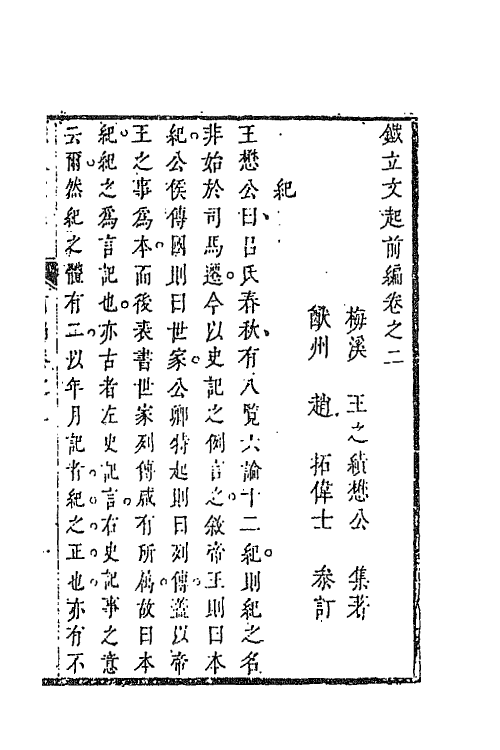 鐵立文起前編卷之二
梅溪 王之績懋公 集著
猷州 趙 拓偉士 叅訂
紀
王懋公曰呂氏春秋有八覽六論十二紀則紀之名
非始於司馬遷今以史記之例言之敘帝王則曰本
紀公侯傳國則曰世家公卿特起則曰列傳葢以帝
王之事爲本而後表書世家列傳咸有所屬故曰本
紀紀之爲言記也亦古者左史記言右史記事之意
云爾然紀之體有二以年月記者紀之正也亦有不